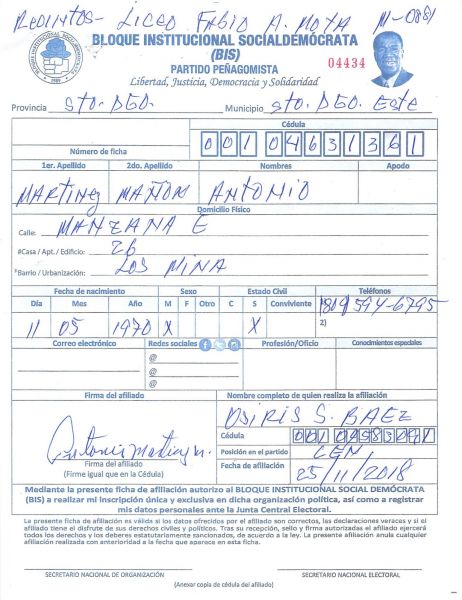 RECINTOS- LICEO FABIO A. MOTA M-0881
BLOQUE INSTITUCIONAL SOCIALDEMÓCRATA
(BIS)
PARTIDO PEÑAGOMISTA
04434
Libertad, Justicia, Democracia y Solidaridad
Provincia STO. DGO. Municipio STO. DGO. ESTE
Cédula
Número de ficha 001 0463136 1
1er. Apellido 2do. Apellido Nombres Apodo
MARTINEZ MAÑON ANTONIO
Domicilio Físico
Calle: MANZANA E
#Casa / Apt. / Edificio: 26
*Barrio / Urbanización: LOS MINA
Fecha de nacimiento Sexo Estado Civil Teléfonos
Día Mes Año M F Otro C S Conviviente 1)809 594-6795
11 05 1970 X X 2)
Correo electrónico Redes sociales Profesión/Oficio Conocimientos especiales
@
@
@
Firma del afiliado Nombre completo de quien realiza la afiliación
OSIRIS S. BAEZ
Cédula
Antonio Martinez M.
Posición en el partido CEN
Firma del afiliado
(Firme igual que en la Cédula)
Fecha de afiliación 25/11/2018
Mediante la presente ficha de afiliación autorizo al BLOQUE INSTITUCIONAL SOCIAL DEMÓCRATA
(BIS) a realizar mi inscripción única y exclusiva en dicha organización política, así como a registrar
mis datos personales ante la Junta Central Electoral.
La presente ficha de afiliación es válida si los datos ofrecidos por el afiliado son correctos, las declaraciones veraces y si el
afiliado tiene el disfrute de sus derechos civiles y políticos. Tras su recepción, sello y firma autorizadas el afiliado ejercerá
todos los derechos y los deberes estatutariamente sancionados, de acuerdo a la ley. La presente afiliación anula cualquier
afiliación realizada con anterioridad a la fecha que aparece en esta ficha.
SECRETARIO NACIONAL DE ORGANIZACIÓN SECRETARIO NACIONAL ELECTORAL
(Anexar copia de cédula del afiliado)